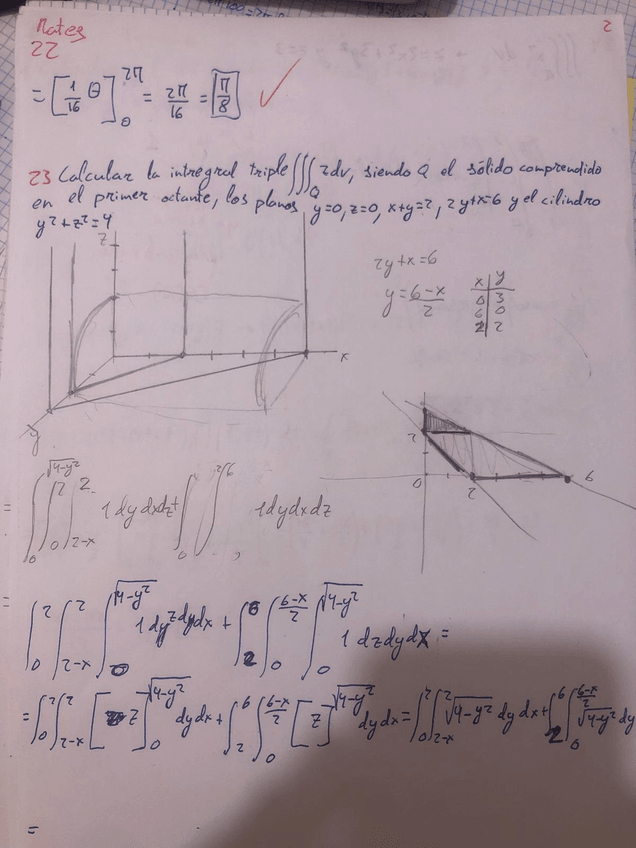 Mates
2
22
= [1/16 θ]₀^2π = 2π/16 = π/8 ✓
23 Calcular la intregral triple ∭_Q z dv, siendo Q el sólido comprendido
en el primer octante, los planos y=0, z=0, x+y=2, 2y+x=6 y el cilindro
y²+z²=4
z
x
y
2y+x=6
y = (6-x)/2
x | y
0 | 3
6 | 0
2 | 2
2
0
2
6
= ∫₀^√(4-y²) ∫₀^2 ∫_{2-x}^2 1 dy dx dz + ∫₀ ∫ ∫ 1 dy dx dz
= ∫₀^2 ∫_{2-x}^2 ∫₀^√(4-y²) 1 dz dy dx + ∫₂^6 ∫₀^{(6-x)/2} ∫₀^√(4-y²) 1 dz dy dx =
= ∫₀^2 ∫_{2-x}^2 [z]₀^√(4-y²) dy dx + ∫₂^6 ∫₀^{(6-x)/2} [z]₀^√(4-y²) dy dx = ∫₀^2 ∫_{2-x}^2 √(4-y²) dy dx + ∫₂^6 ∫₀^{(6-x)/2} √(4-y²) dy
=